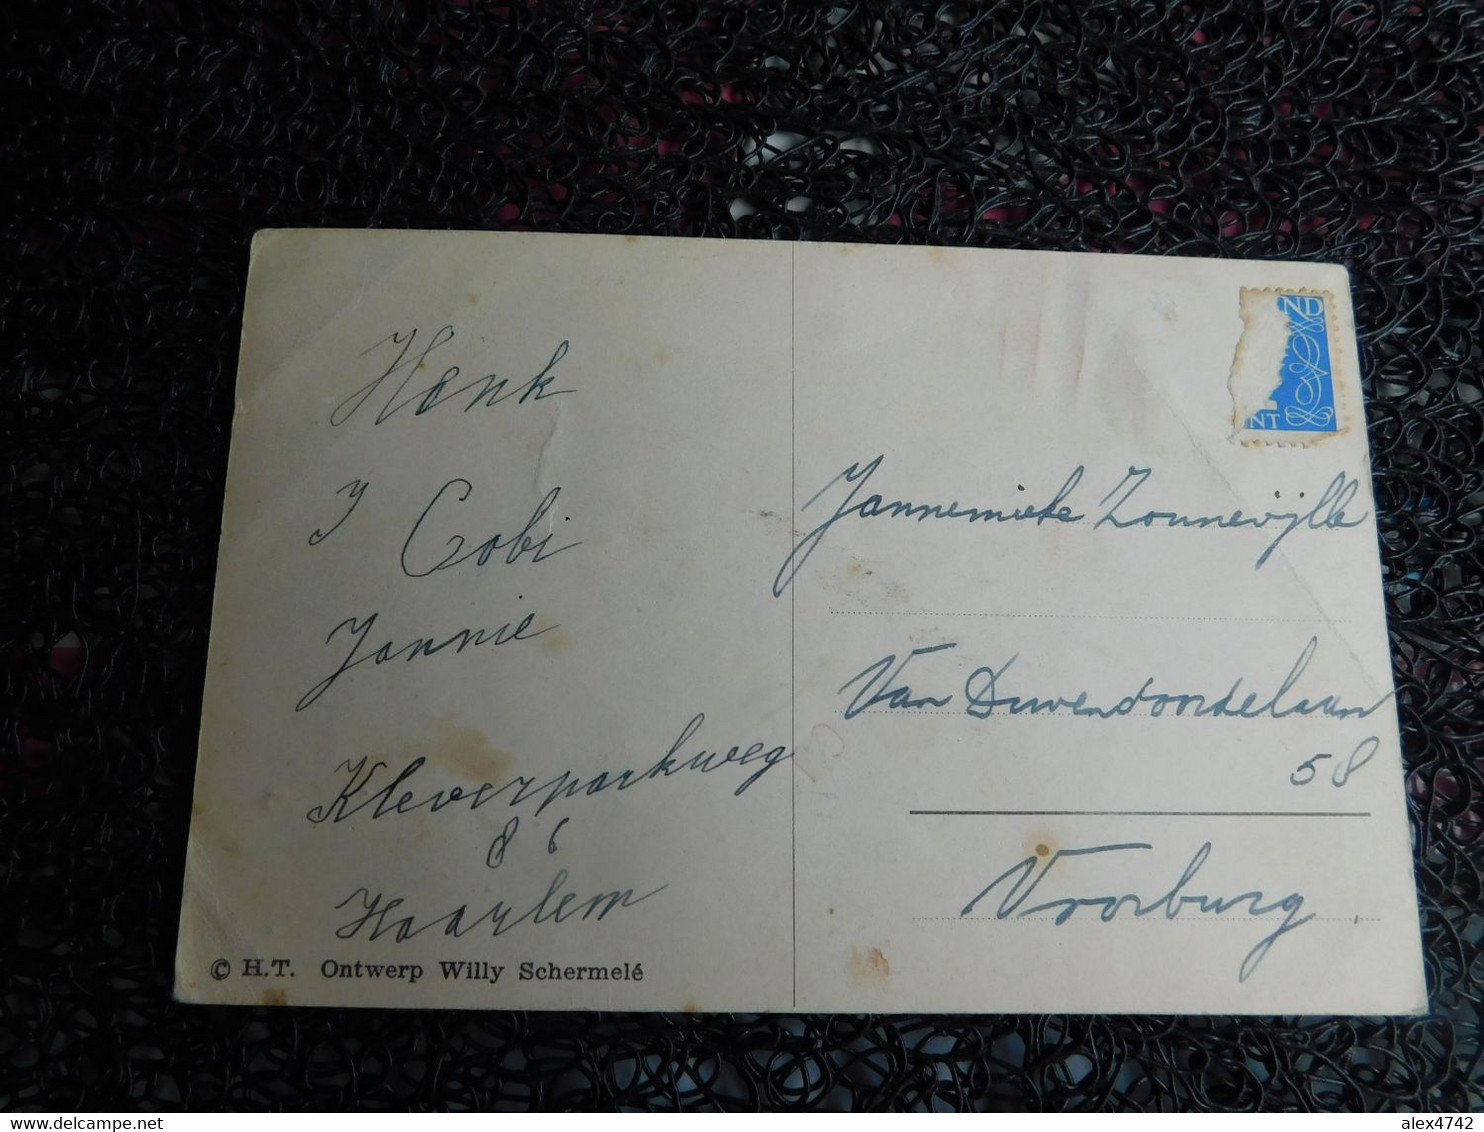 Henk
Y Cobi
Jannie
Kleverparkweg
86
Haarlem
© H.T. Ontwerp Willy Schermelé
ND
NT
Jannemieke Zonnevijlle
Van Duvendoordelaan
58
Voorburg
alex4742